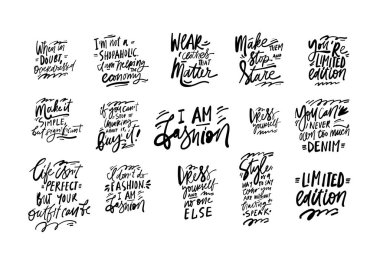 When in
DOUBT,
overdressed
I'm not a
SHOPAHOLIC.
I am helping the
economy
WEAR
clothes
THAT
Matter
Make
THEM
Stop
AND
Stare
You're
LIMITED
edition
Make it
SIMPLE,
but significant
If you can't
STOP
thinking
ABOUT IT
Buy it!
I AM
fashion
Dress
yourself
You can
NEVER
own too much
DENIM
Life isn't
PERFECT
BUT YOUR
outfit can be
I don't do
FASHION.
I AM
fashion
Dress
yourself
and
no one
ELSE
Style
IS A
WAY TO SAY
who you
ARE WITHOUT
having to
SPEAK
LIMITED
edition